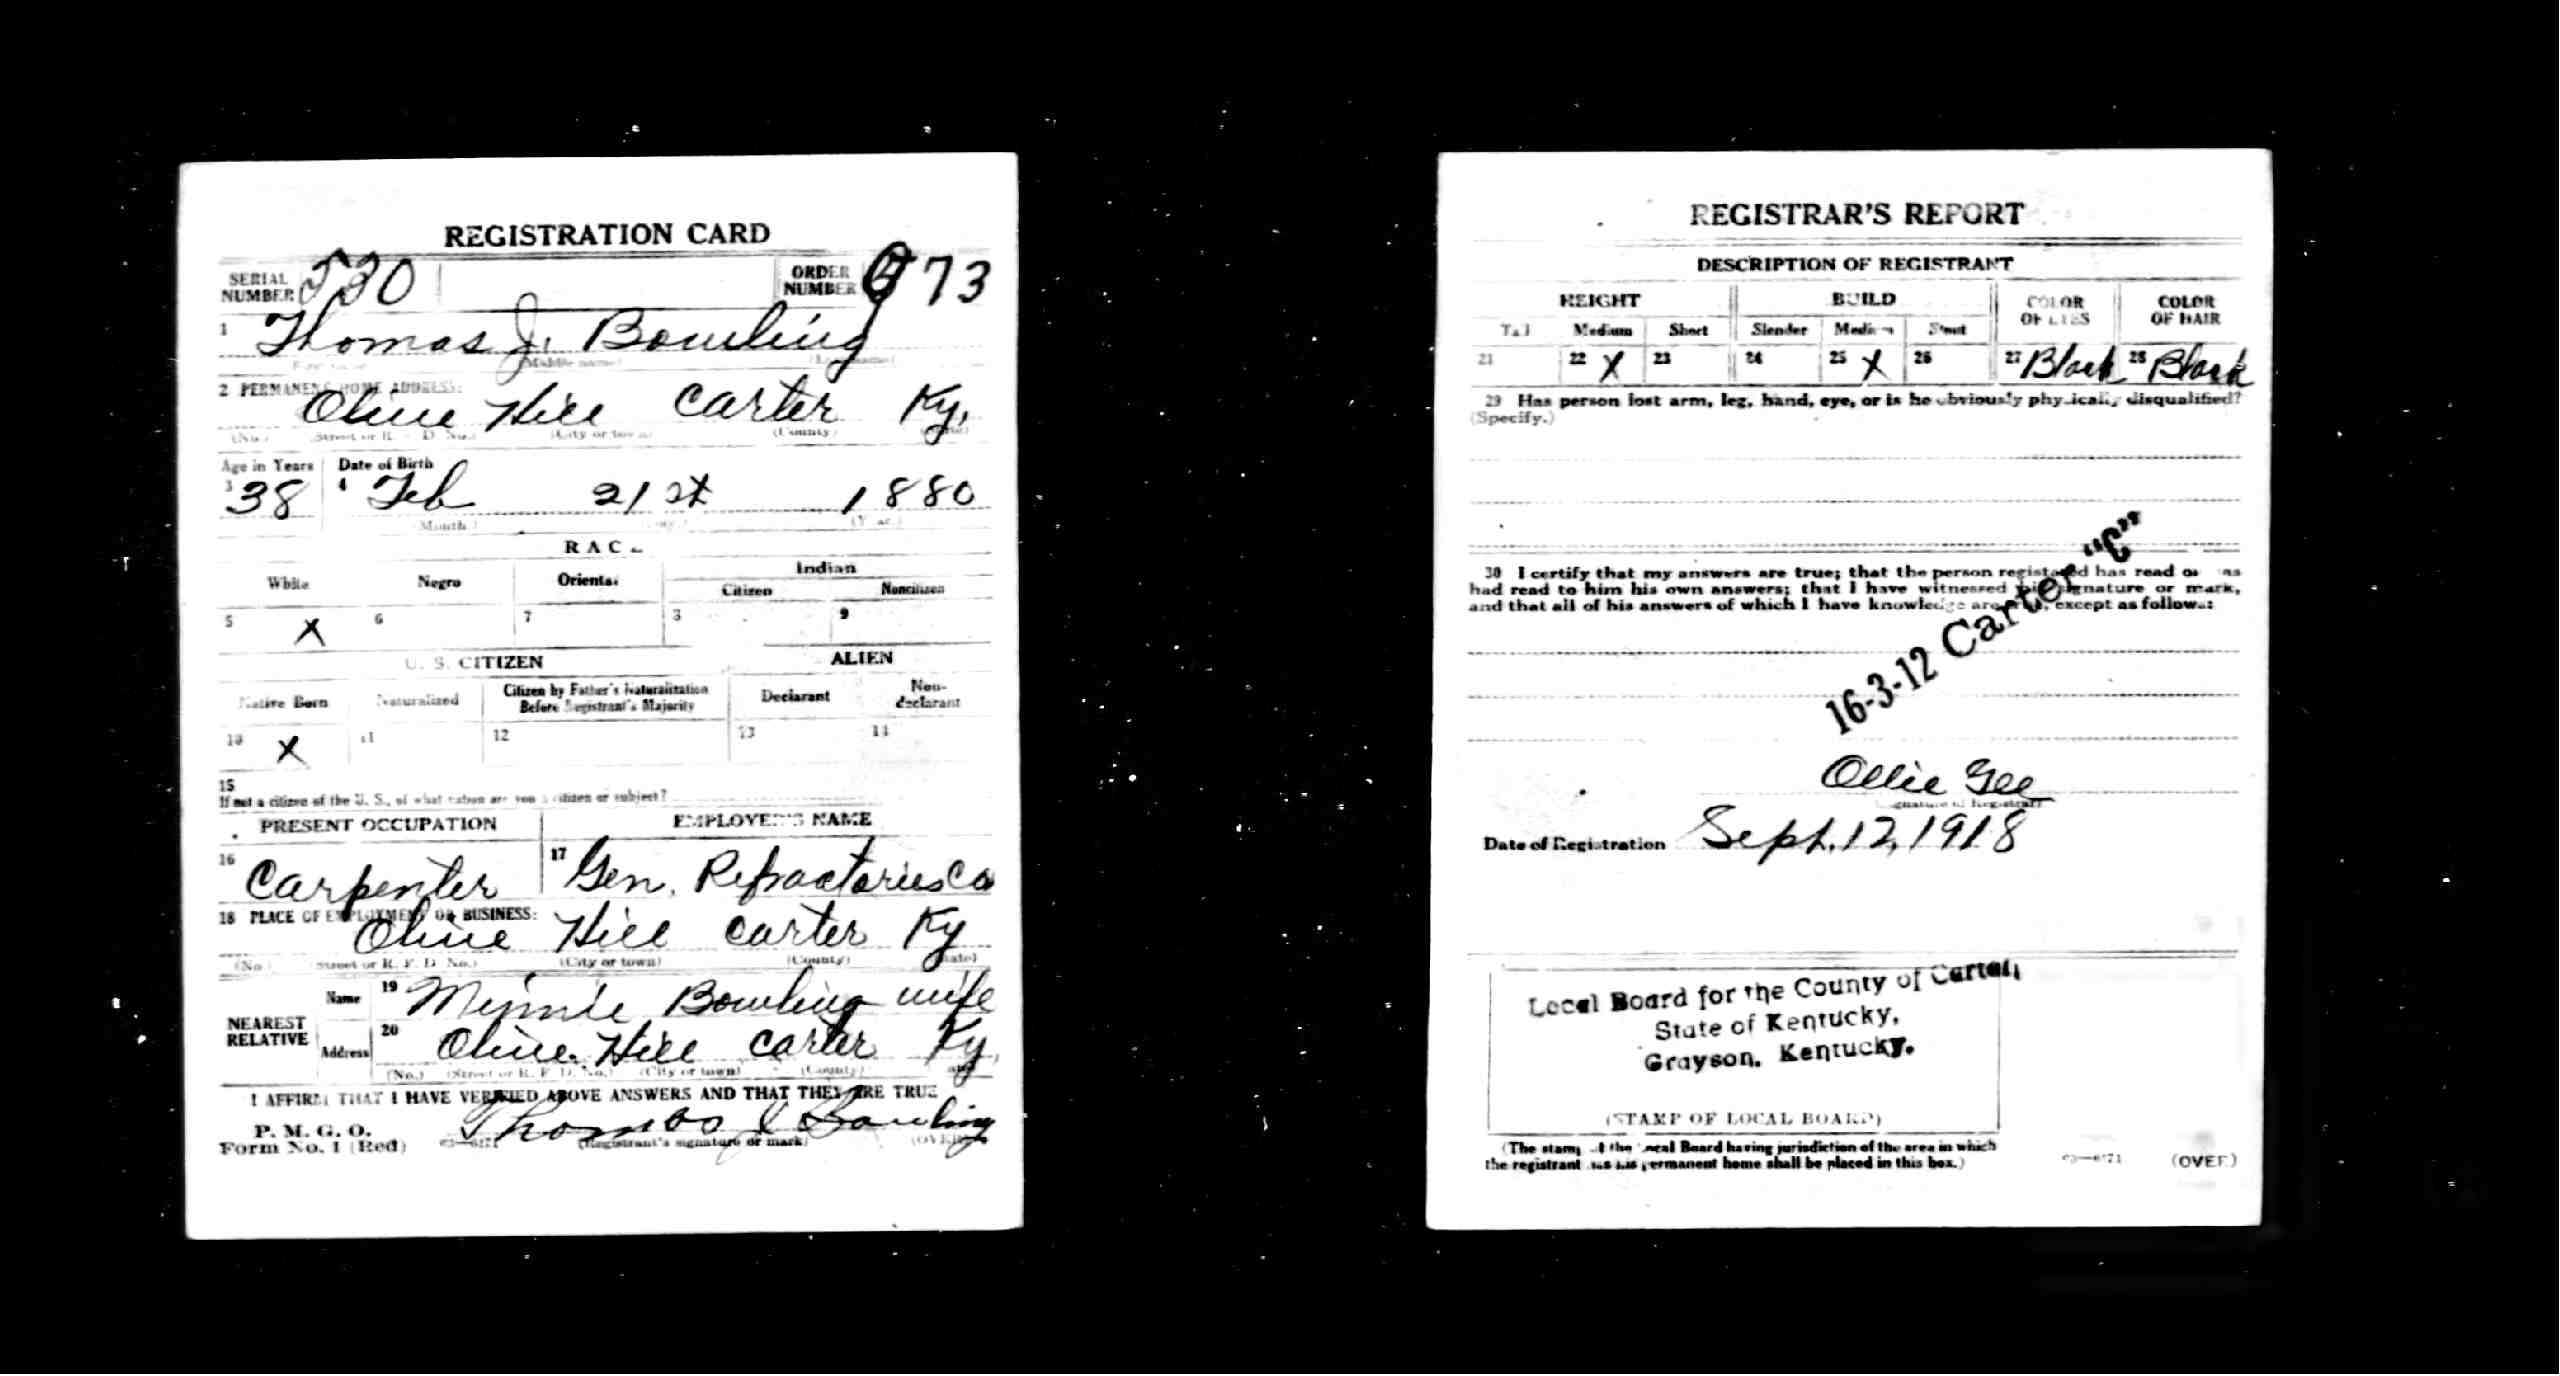 REGISTRATION CARD
SERIAL NUMBER 530 ORDER NUMBER 673
1 Thomas J. Bowling
(Middle name)
2 PERMANENT HOME ADDRESS:
Olive Hill Carter Ky.
(No.) (Street or R. F. D. No.) (City or town) (County) (State)
Age in Years Date of Birth
3 38 4 Feb 21st 1880
(Month.) (Day.) (Year.)
RACE
White Negro Oriental Indian
Citizen Noncitizen
5 X 6 7 8 9
U. S. CITIZEN ALIEN
Native Born Naturalized Citizen by Father's Naturalization Before Registrant's Majority Declarant Non-declarant
10 X 11 12 13 14
15
If not a citizen of the U. S., of what nation are you a citizen or subject?
PRESENT OCCUPATION EMPLOYER'S NAME
16 Carpenter 17 Gen. Refractories Co
18 PLACE OF EMPLOYMENT OR BUSINESS:
Olive Hill Carter Ky
(No.) (Street or R. F. D. No.) (City or town) (County) (State)
NEAREST RELATIVE Name 19 Minnie Bowling wife
Address 20 Olive Hill Carter Ky.
(No.) (Street or R. F. D. No.) (City or town) (County) (State)
I AFFIRM THAT I HAVE VERIFIED ABOVE ANSWERS AND THAT THEY ARE TRUE
P. M. G. O.
Form No. 1 (Red) 03—6171 Thomas J Bowling
(Registrant's signature or mark) (OVER)
REGISTRAR'S REPORT
DESCRIPTION OF REGISTRANT
HEIGHT BUILD COLOR OF EYES COLOR OF HAIR
Tall Medium Short Slender Medium Stout
21 22 X 23 24 25 X 26 27 Black 28 Black
29 Has person lost arm, leg, hand, eye, or is he obviously physically disqualified?
(Specify.)
30 I certify that my answers are true; that the person registered has read or has
had read to him his own answers; that I have witnessed his signature or mark,
and that all of his answers of which I have knowledge are true, except as follows:
16-3-12 Carter "C"
Ollie Gee
(Signature of Registrar)
Date of Registration Sept. 12, 1918
Local Board for the County of Carter,
State of Kentucky,
Grayson, Kentucky.
(STAMP OF LOCAL BOARD)
(The stamp of the Local Board having jurisdiction of the area in which
the registrant has his permanent home shall be placed in this box.)
03—6171 (OVER)